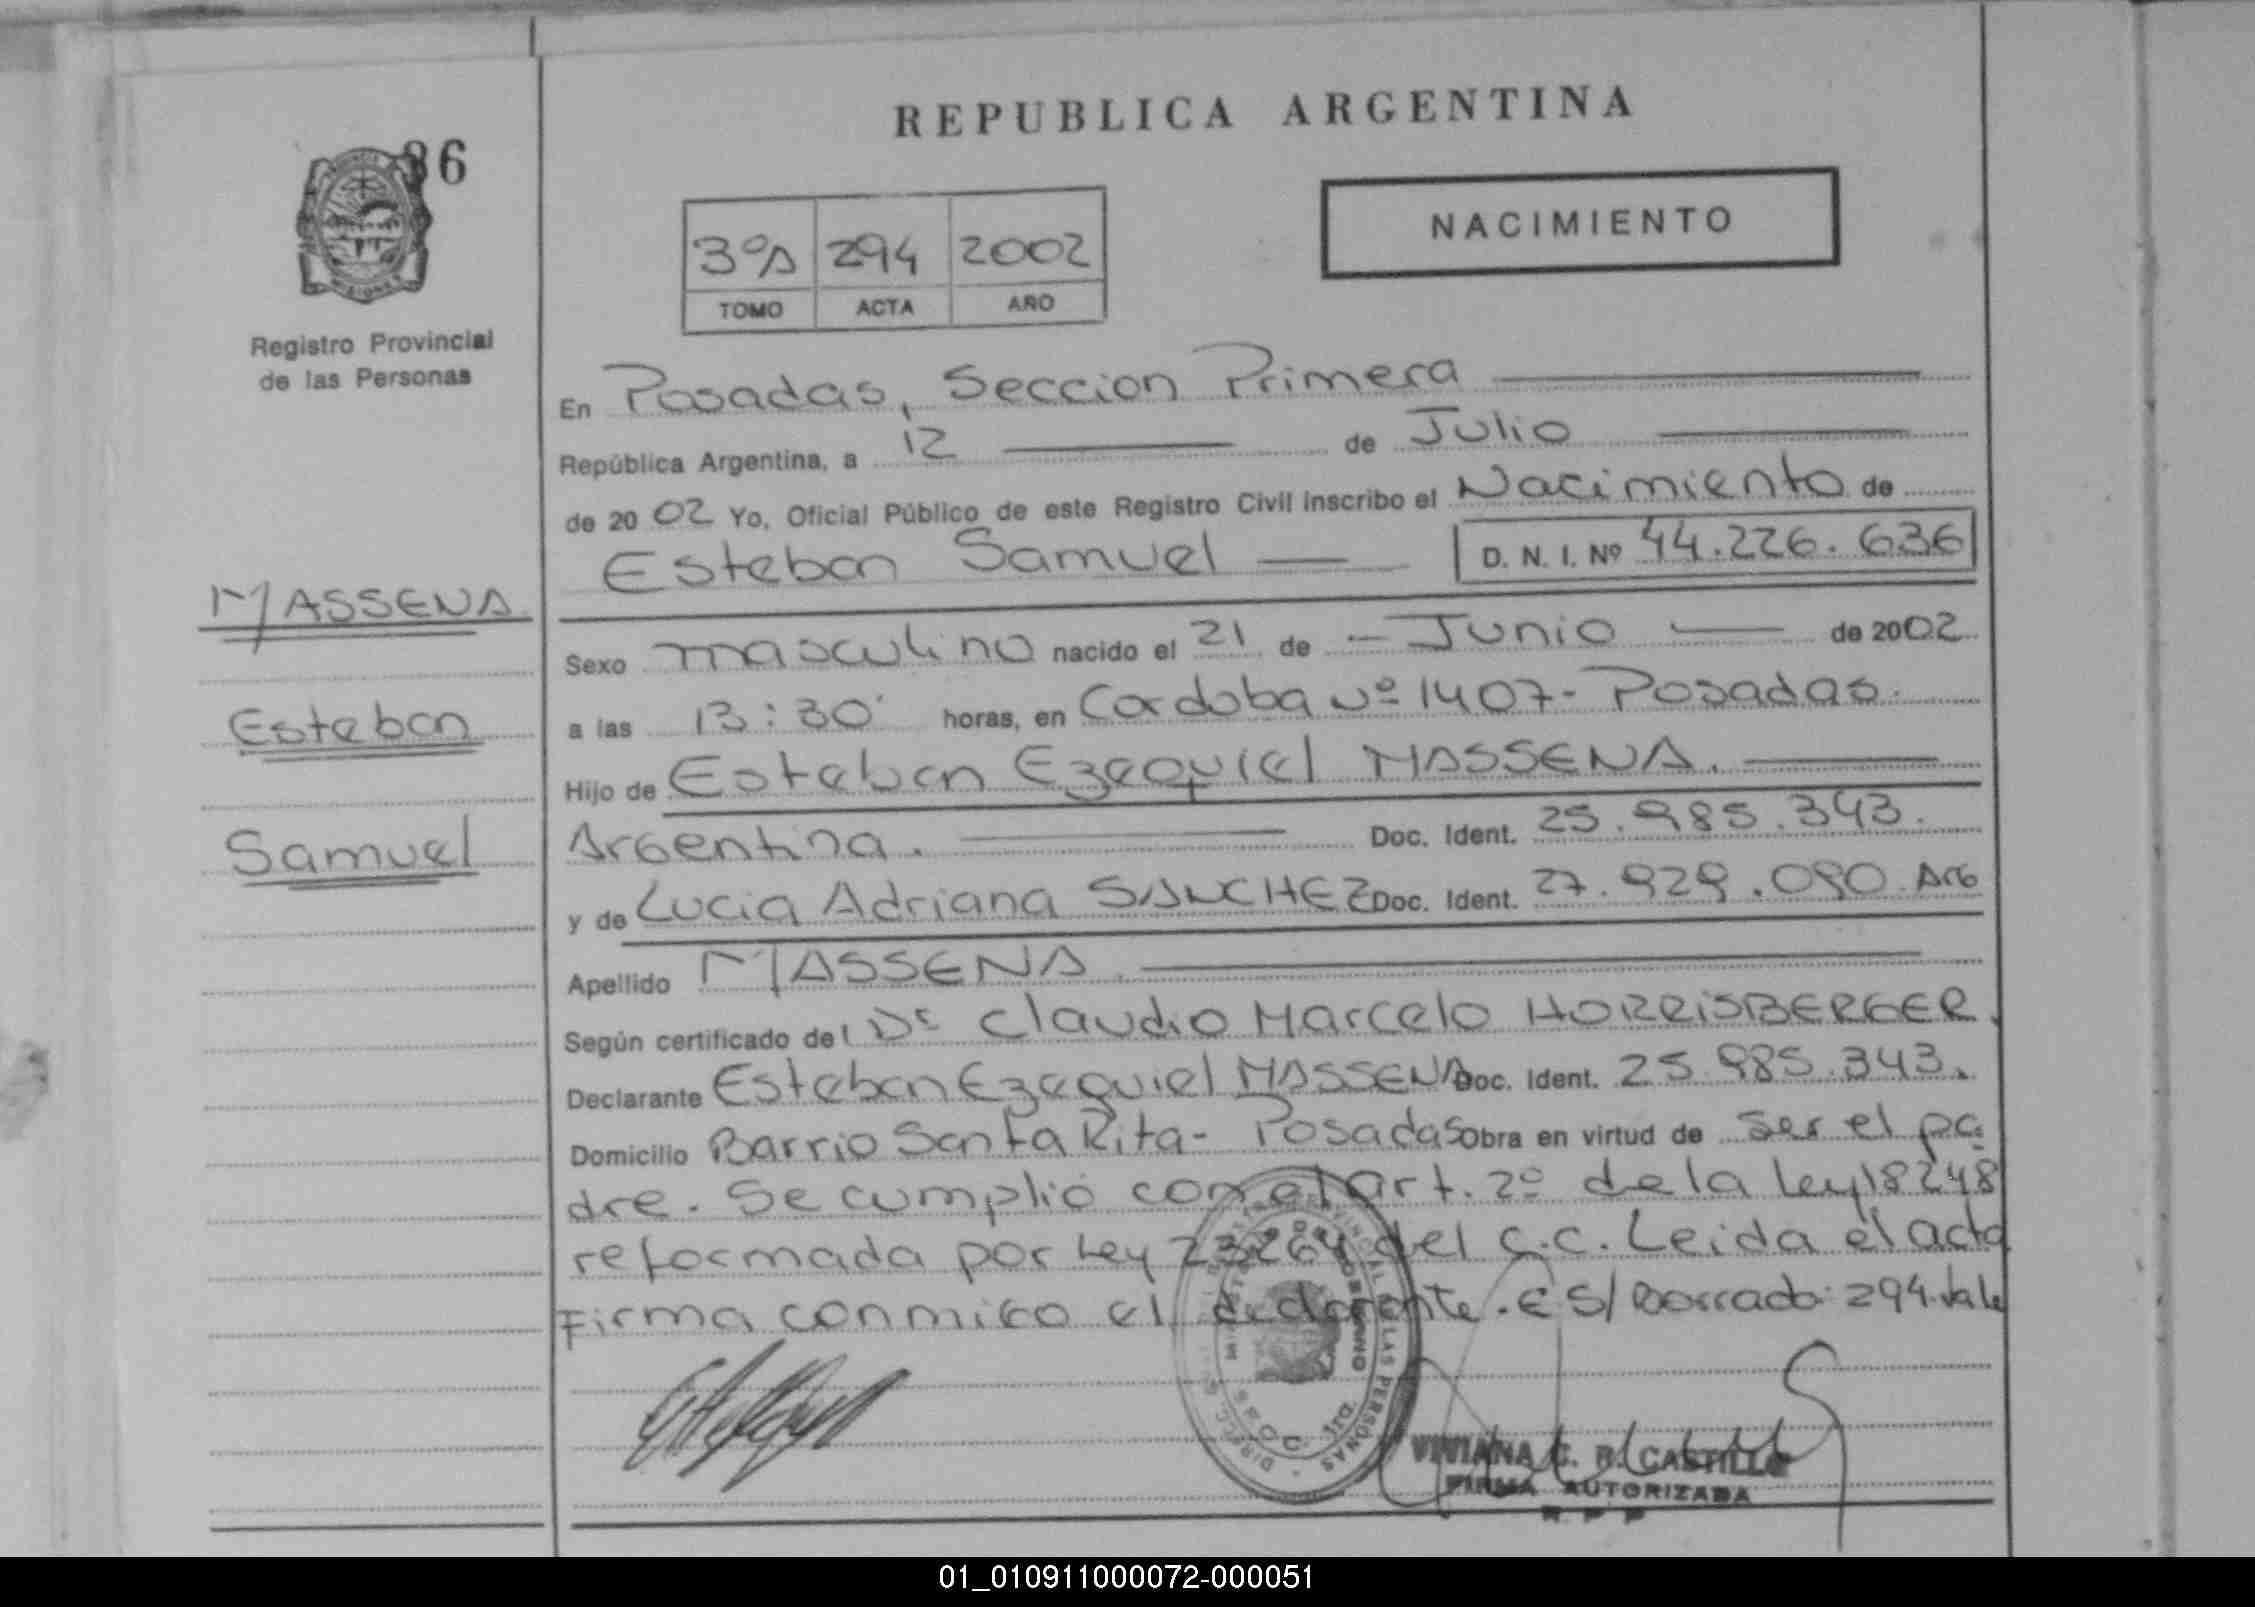 REPUBLICA ARGENTINA
86
NACIMIENTO
3ºA 294 2002
TOMO ACTA AÑO
MISIONES
Registro Provincial
de las Personas
En Posadas, Seccion Primera
República Argentina, a 12 de Julio
de 2002 Yo, Oficial Público de este Registro Civil inscribo el Nacimiento de
Esteban Samuel D. N. I. Nº 44.226.636
MASSENA
Esteban
Samuel
Sexo masculino nacido el 21 de Junio de 2002
a las 13:30' horas, en Cordoba Nº 1407- Posadas.
Hijo de Esteban Ezequiel MASSENA.
Argentina. Doc. Ident. 25.985.343.
y de Lucia Adriana SANCHEZ Doc. Ident. 27.929.090 Arg
Apellido MASSENA.
Según certificado del Dr Claudio Marcelo HORRISBERGER.
Declarante Esteban Ezequiel MASSENA Doc. Ident. 25.985.343.
Domicilio Barrio Santa Rita- Posadas Obra en virtud de ser el pa
dre. Se cumplió con el art. 2º de la Ley 18248
reformada por Ley 23264 del C.C. Leida el acta
Firma conmigo el declarante. E S/ Borrado: 294. vale
SECC. 1ra.
LAS PERSONAS
VIVIANA C. R. CASTILLO
FIRMA AUTORIZADA
R P P
01_010911000072-000051